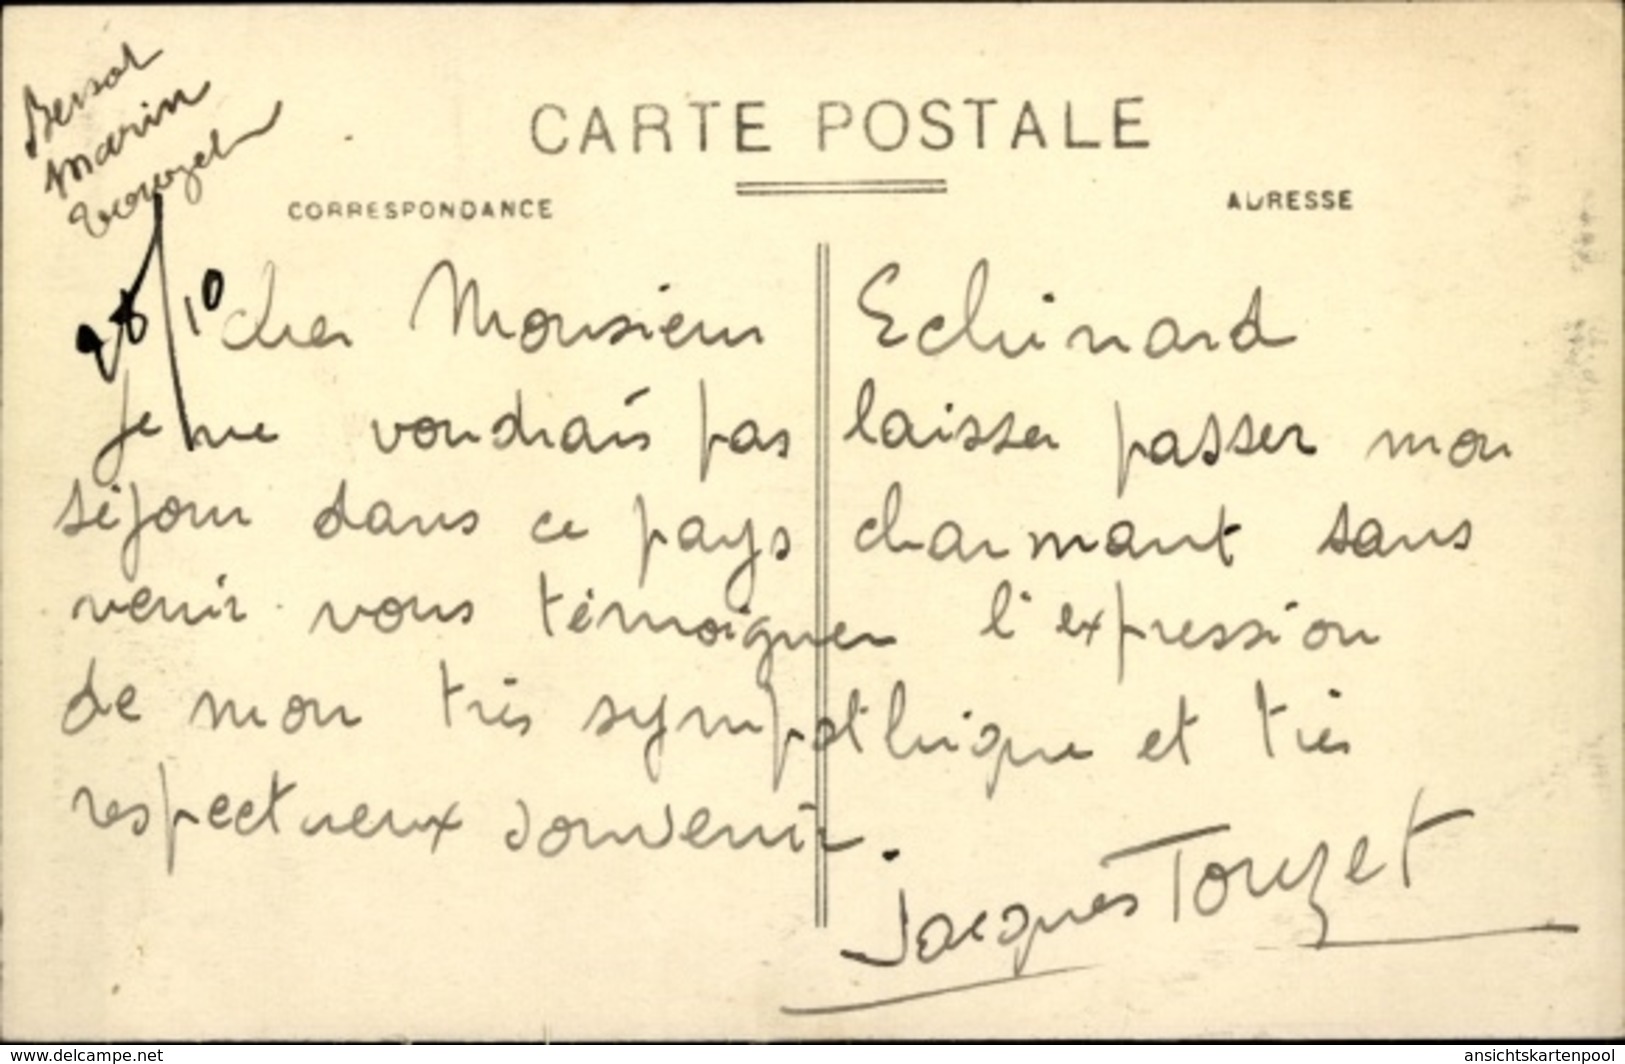 Bersot
Marin
CARTE POSTALE
CORRESPONDANCE
ADRESSE
28/10
Cher Monsieur Echinard
je ne voudrais pas laisser passer mon
séjour dans ce pays charmant sans
venir vous témoigner l'expression
de mon très sympathique et très
respectueux souvenir.
Jacques Touzet
www.delcampe.net
ansichtskartenpool